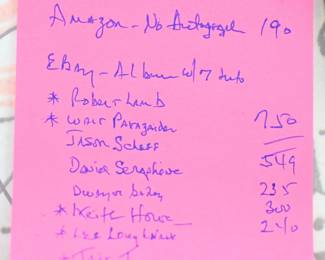 Amazon - No Autograph 190
EBay - Album w/7 auto
* Robert Lamb
* Walt Parazaider 750
Jason Scheff 549
Danie Seraphine
235
* Keith Howland 300
* Lee Loughnane 240